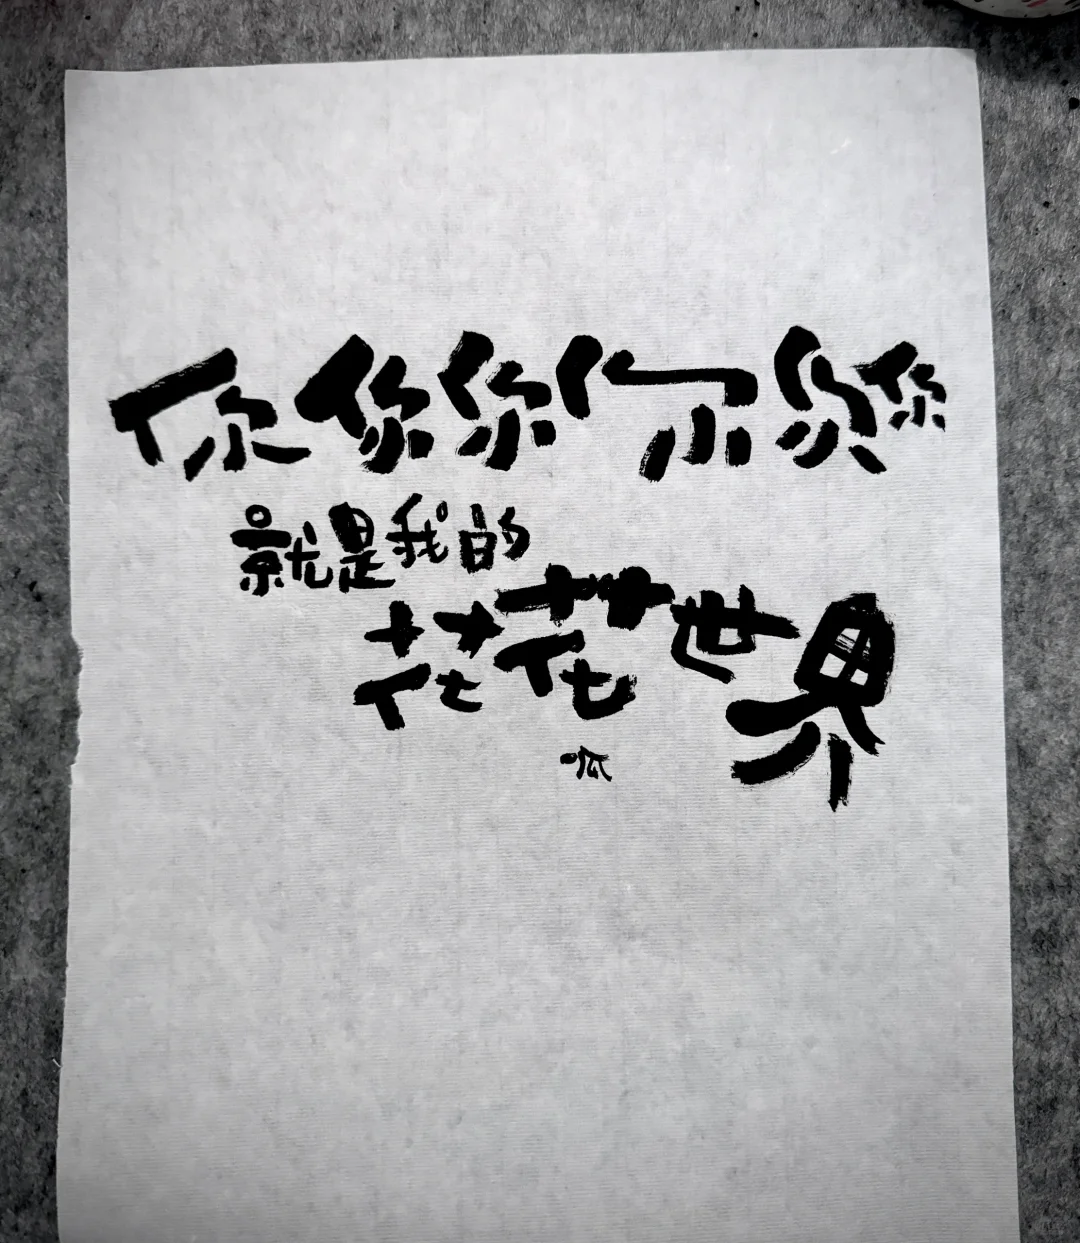 你你你你你你
就是我的
花花世界
呱